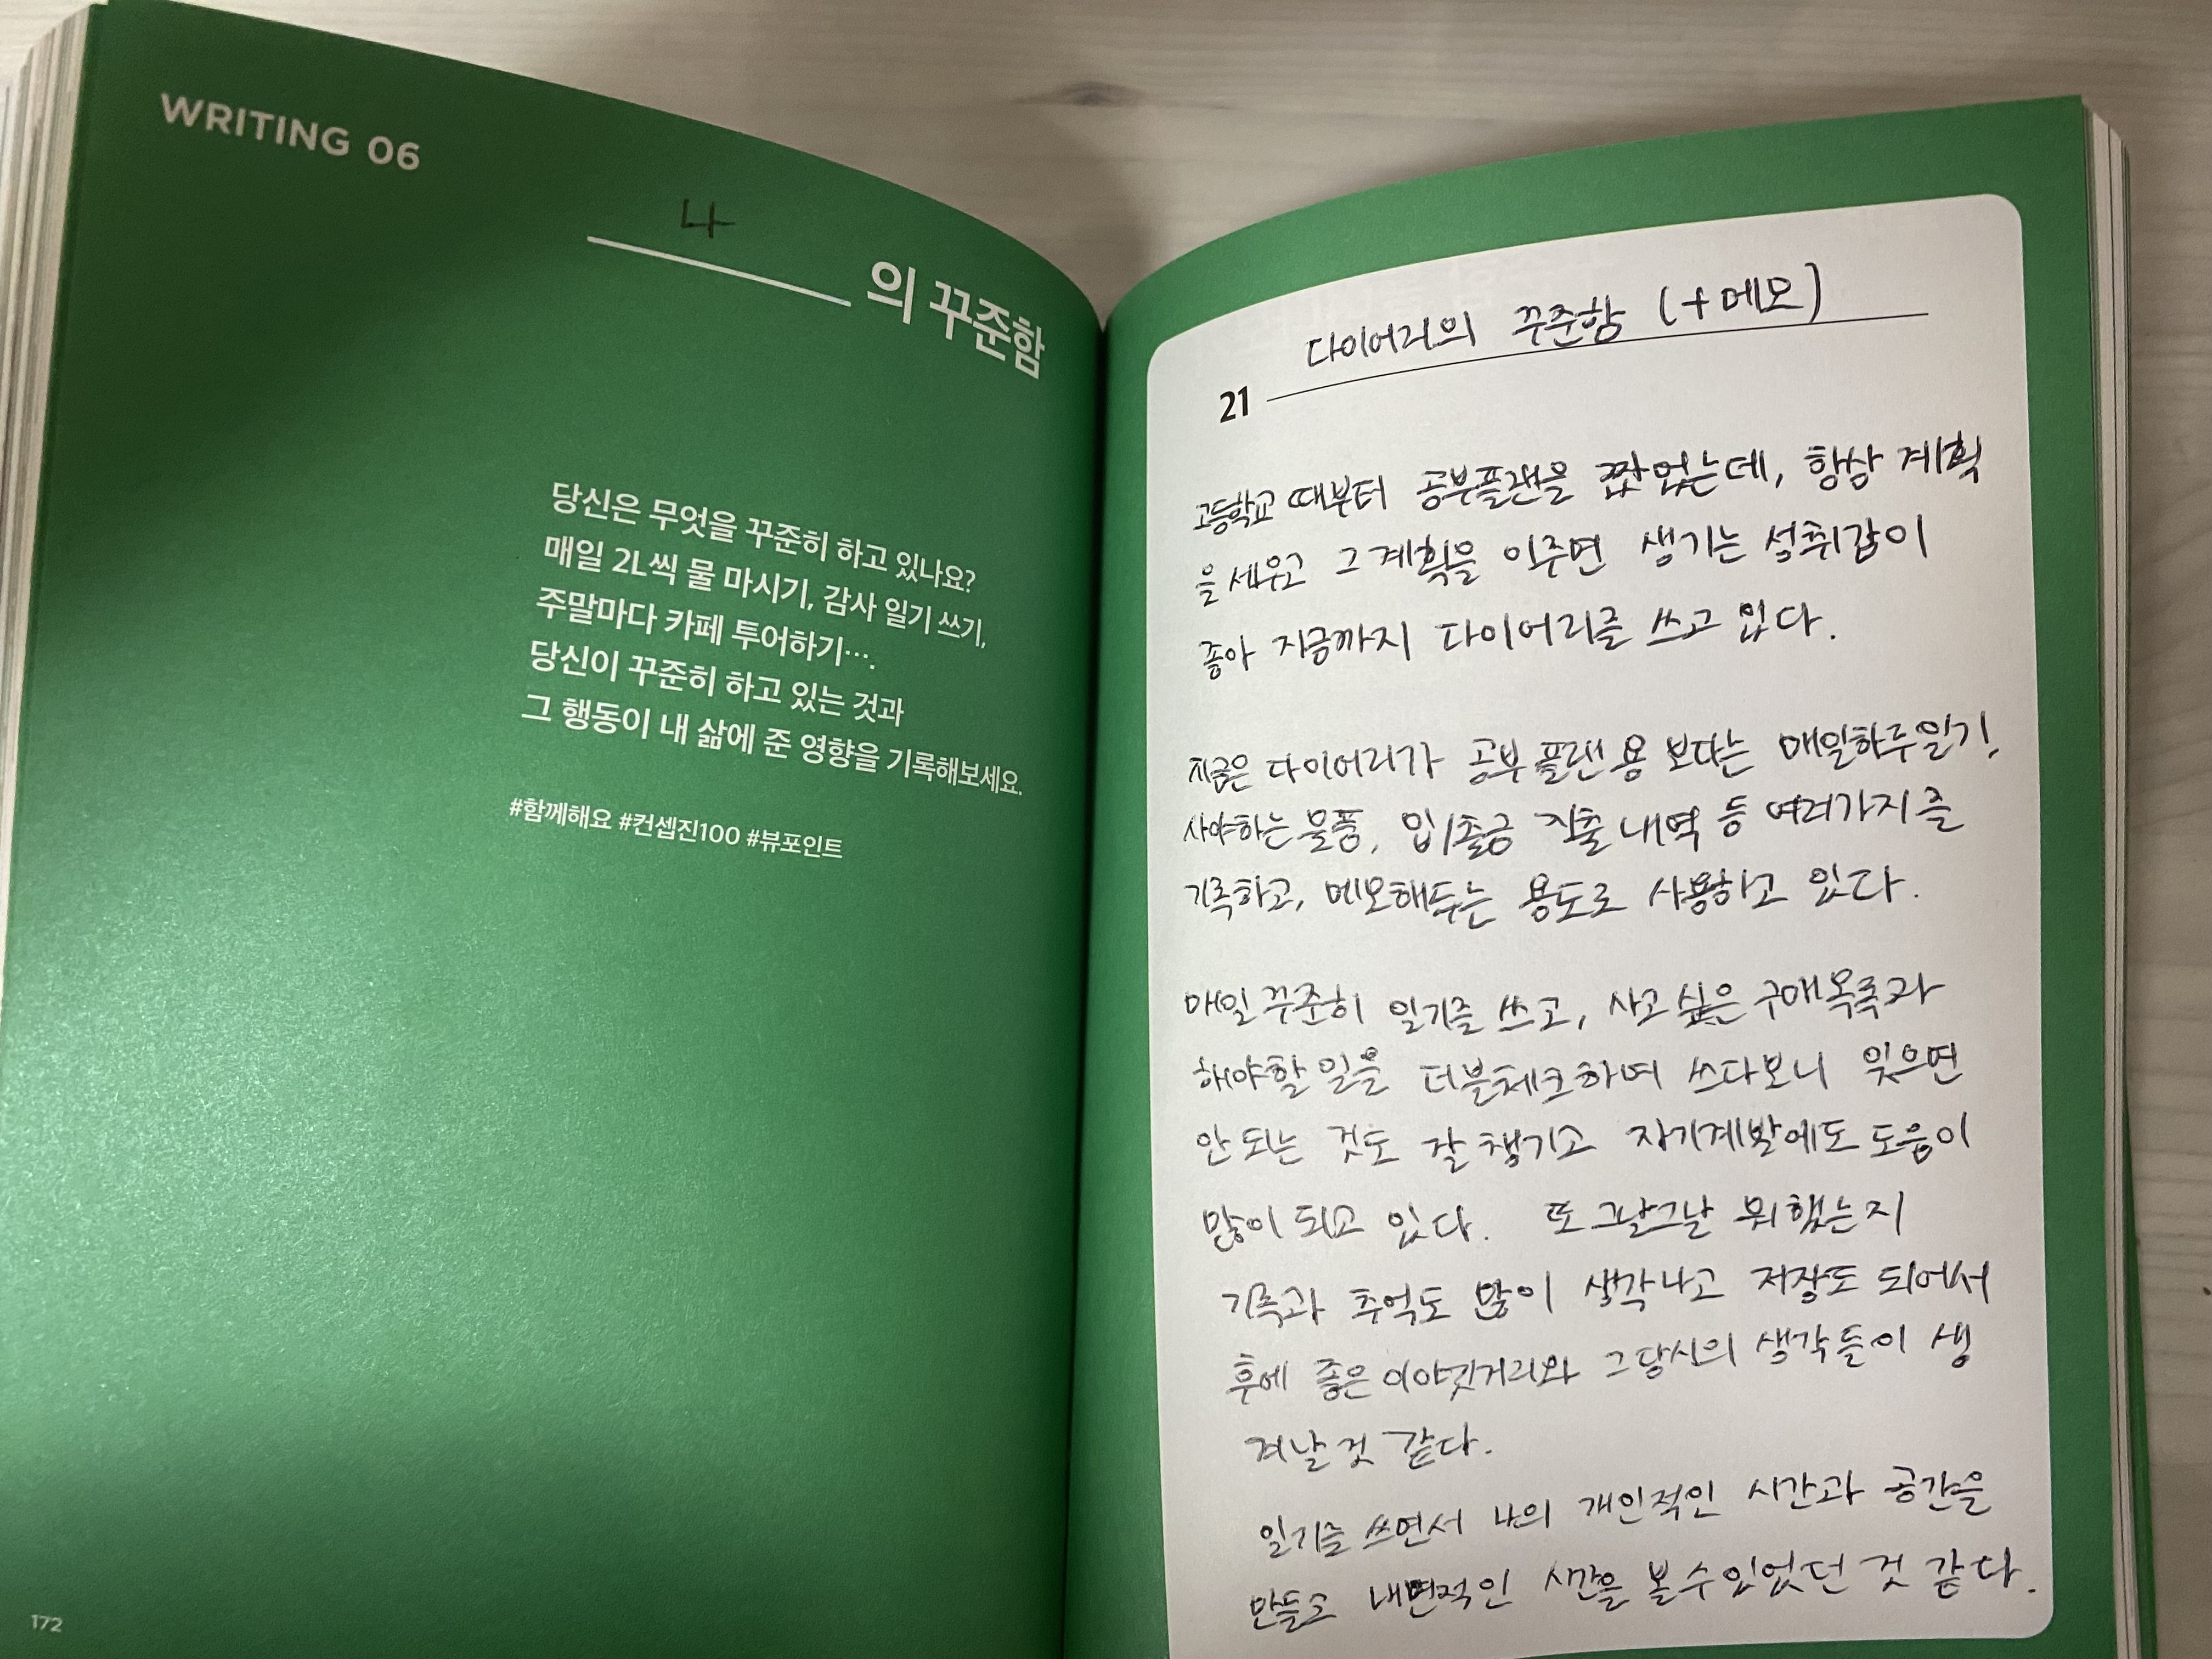 WRITING 06
나
의 꾸준함
당신은 무엇을 꾸준히 하고 있나요?
매일 2L씩 물 마시기, 감사 일기 쓰기,
주말마다 카페 투어하기….
당신이 꾸준히 하고 있는 것과
그 행동이 내 삶에 준 영향을 기록해보세요.
#함께해요 #컨셉진100 #뷰포인트
172
다이어리의 꾸준함 (+메모)
21
고등학교 때부터 공부플랜을 짰었는데, 항상 계획
을 세우고 그 계획을 이주면 생기는 성취감이
좋아 지금까지 다이어리를 쓰고 있다.
지금은 다이어리가 공부 플랜용 보다는 매일하루일기,
사야하는 물품, 입/출금 지출내역 등 여러가지를
기록하고, 메모해두는 용도로 사용하고 있다.
매일 꾸준히 일기를 쓰고, 사고싶은 구매목록과
해야할 일을 더블체크하며 쓰다보니 잊으면
안 되는 것도 잘 챙기고 자기계발에도 도움이
많이 되고 있다. 또 그날그날 뭐했는지
기록과 추억도 많이 생각나고 저장도 되어서
후에 좋은 이야깃거리와 그당시의 생각들이 생
겨날 것 같다.
일기를 쓰면서 나의 개인적인 시간과 공간을
만들고 내면적인 시간을 볼 수 있었던 것 같다.